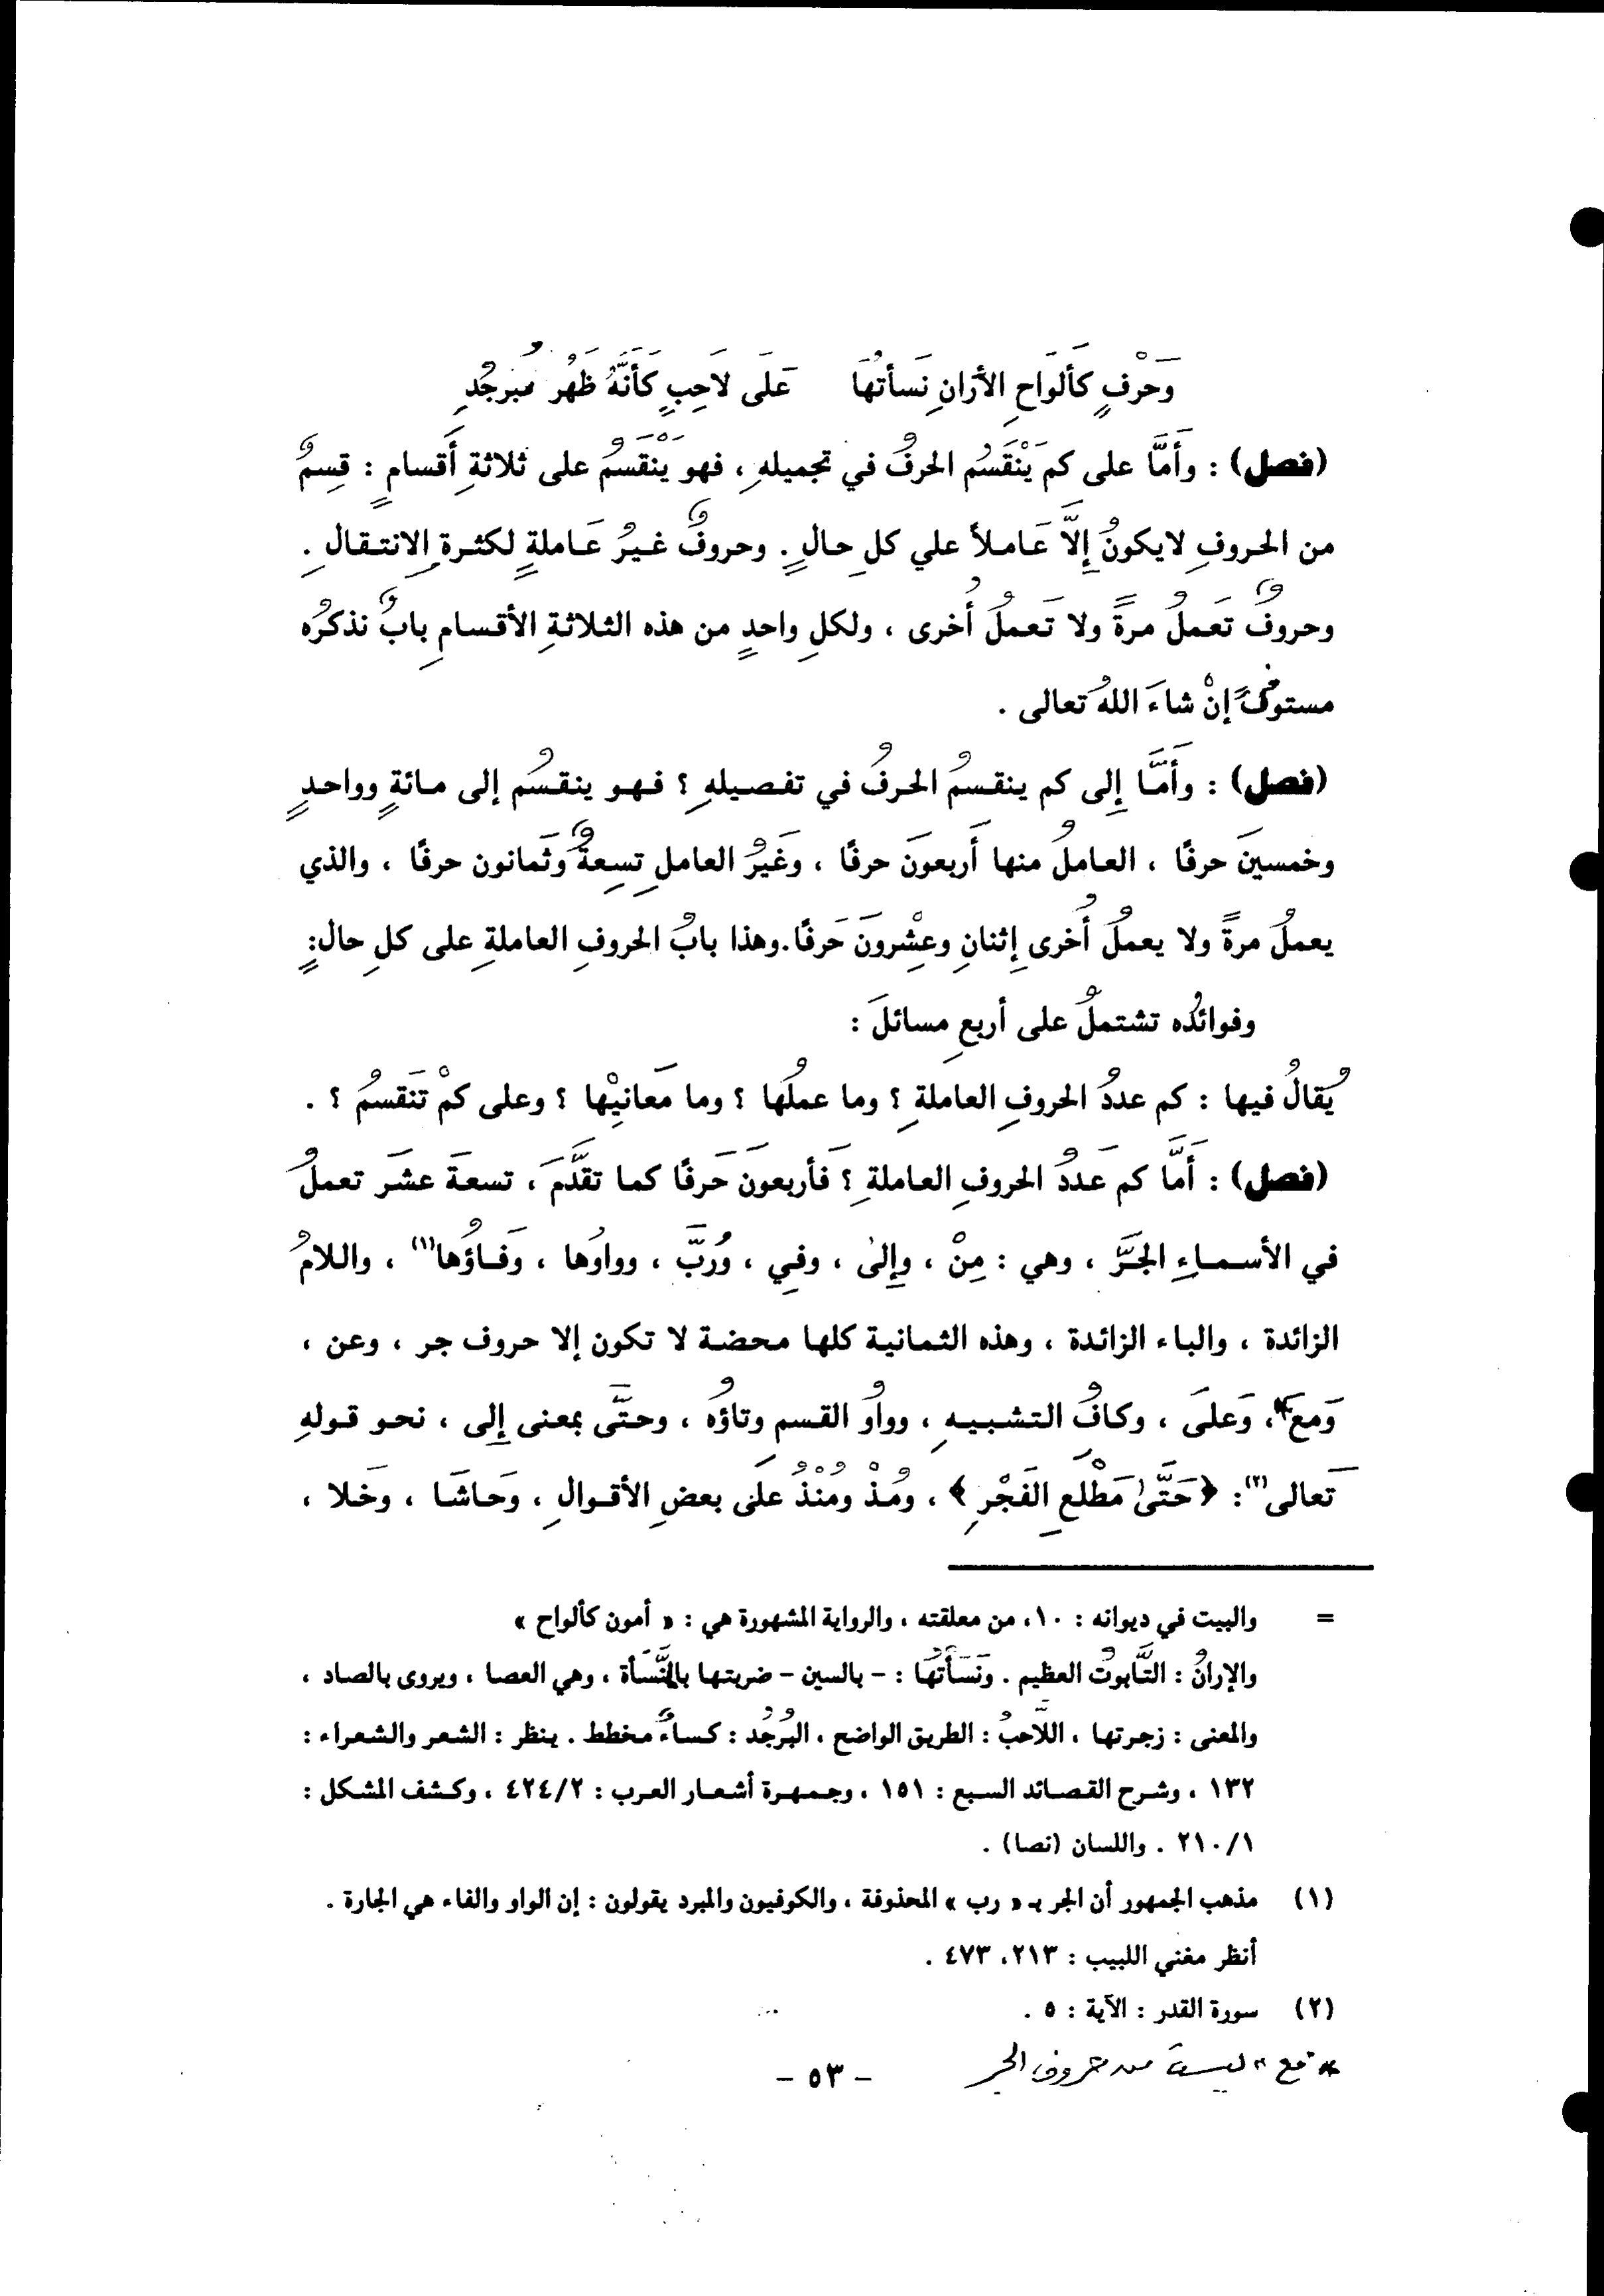 وَحَرْفٍ كَألَوَاحِ الأرانِ نَسأتُهَا عَلَى لاَحِبٍ كَأنَّهُ ظَهْر بُبرجُدِ
(فصل) : وأَمَّا على كم يَنْقَسُم الحرفُ في تجميلهِ ، فهو يَنْقَسمُ على ثلاثةِ أَقسامٍ : قِسمٌ
من الحروفِ لايكونُ إِلَّا عَاملاً علي كلِ حالٍ . وحروفٌ غيرُ عَاملةٍ لكثرةِ الانتقالِ .
وحروفٌ تَعملُ مرةً ولا تَعملُ أُخرى ، ولكلِ واحدٍ من هذه الثلاثةِ الأقسامِ بابٌ نذكرُه
مستوفىً إنْ شاءَ اللهُ تعالى .
(فصل) : وأَمَّا إِلى كم ينقسمُ الحرفُ في تفصيلهِ ؟ فهو ينقسُم إلى مائةٍ وواحدٍ
وخمسينَ حرفًا ، العاملُ منها أَربعونَ حرفًا ، وغَيرُ العاملِ تسعةٌ وثَمانون حرفًا ، والذي
يعملُ مرةً ولا يعملُ أُخرى إِثنانِ وعِشْرونَ حَرفًا.وهذا بابُ الحروفِ العاملةِ على كلِ حالٍ:
وفوائدُه تشتملُ على أربعِ مسائلَ :
يُقالُ فيها : كم عددُ الحروفِ العاملةِ ؟ وما عملُها ؟ وما مَعانيْها ؟ وعلى كمْ تَنقسمُ ؟ .
(فصل) : أَمَّا كم عَددُ الحروفِ العاملةِ ؟ فأربعونَ حَرفًا كما تقدَّمَ ، تسعةَ عشَر تعملُ
في الأسماءِ الجَرَّ ، وهي : مِنْ ، وإِلىٰ ، وفي ، ورُبَّ ، وواوُها ، وَفاؤُها(١) ، واللامُ
الزائدة ، والباء الزائدة ، وهذه الثمانية كلها محضة لا تكون إلا حروف جر ، وعن ،
وَمعَ*، وَعلَى ، وكافُ التشبيهِ ، وواوُ القسمِ وتاؤُه ، وحتَّى بمعنى إِلى ، نحو قولهِ
تَعالى(٢): ﴿ حَتَّىٰ مَطْلَعِ الفَجْرِ ﴾ ، ومُذْ ومُنْذُ على بعضِ الأقوالِ ، وَحاشَا ، وَخلا ،
= والبيت في ديوانه : ١٠، من معلقته ، والرواية المشهورة هي : « أمون كألواح »
والإرانُ : التَّابوتُ العظيم . ونَسَأتُهَا : – بالسين – ضربتها بالمِنَّسَأة ، وهي العصا ، ويروى بالصاد ،
والمعنى : زجرتها ، اللَّاحبُ : الطريق الواضح ، البُرجُد : كساءٌ مخطط . ينظر : الشعر والشعراء :
١٣٢ ، وشرح القصائد السبع : ١٥١ ، وجمهرة أشعار العرب : ٤٢٤/٢ ، وكشف المشكل :
٢١٠/١ . واللسان (نصا) .
(١) مذهب الجمهور أن الجر بـ « رب » المحذوفة ، والكوفيون والمبرد يقولون : إن الواو والفاء هي الجارة .
أنظر مغني اللبيب : ٢١٣، ٤٧٣ .
(٢) سورة القدر : الآية : ٥ .
* "مع" ليست من حروف الجر
– ٥٣ –